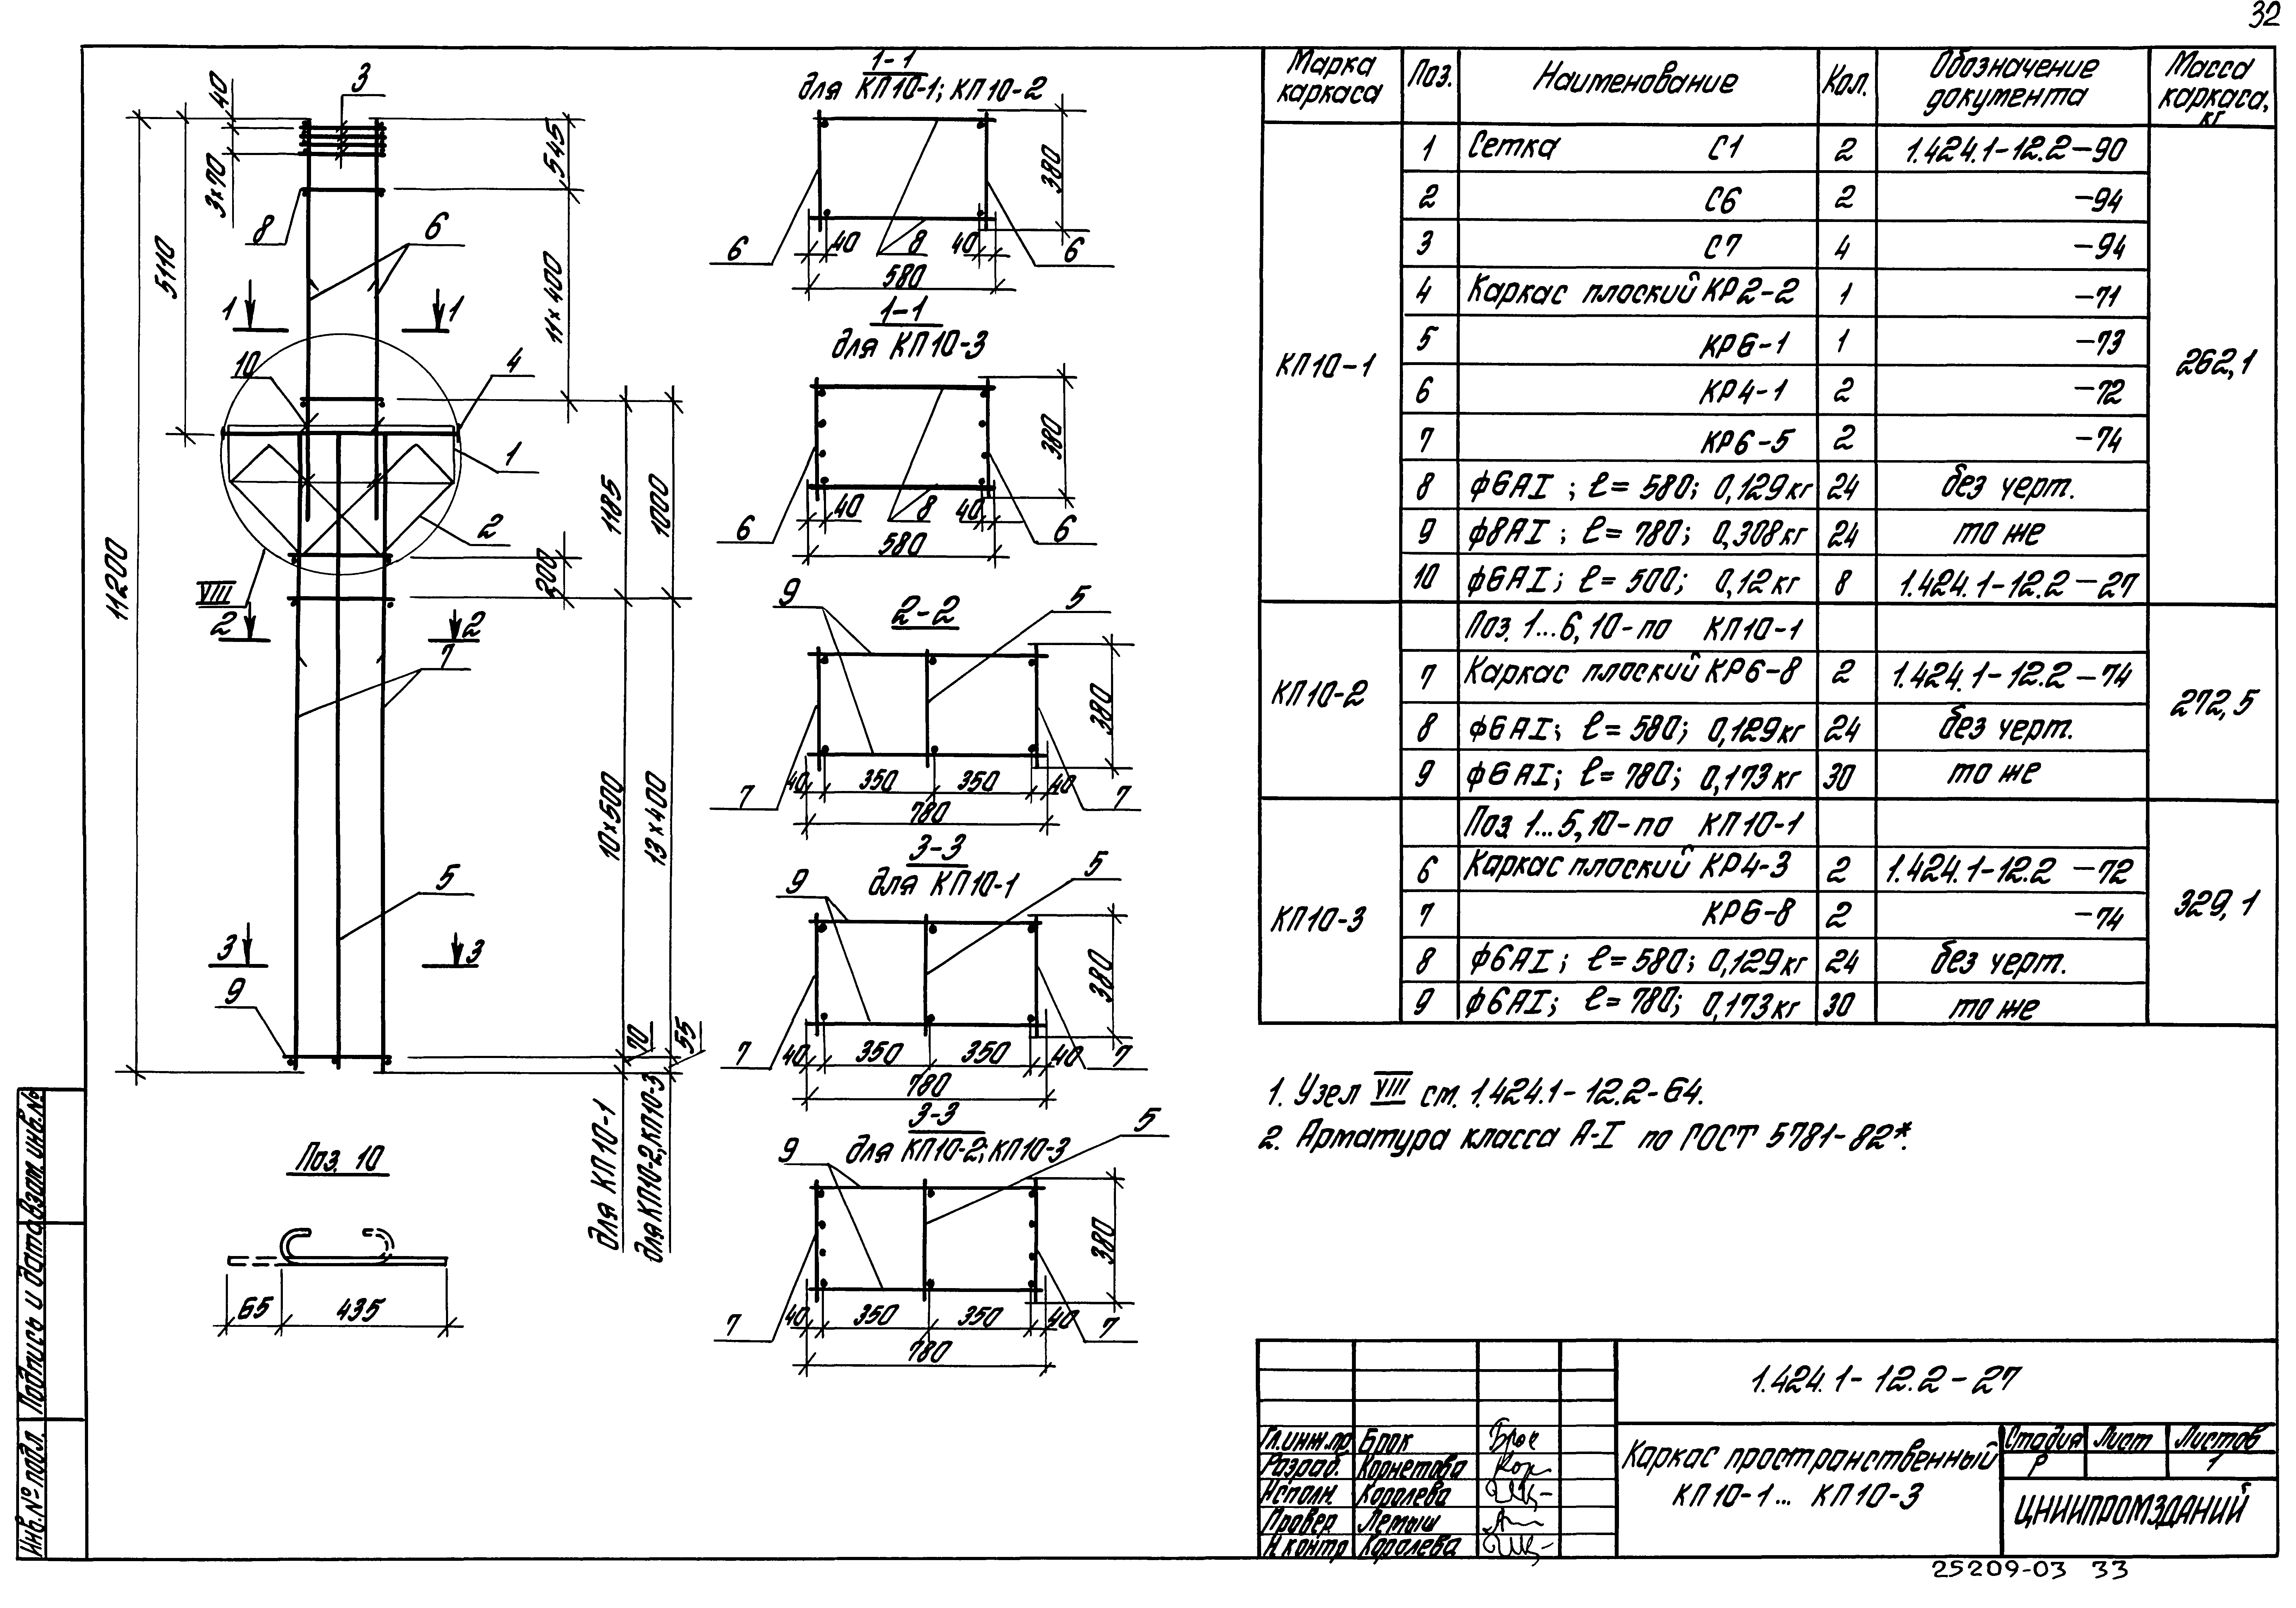 32
40
3
3×70
8
6
5110
545
11×400
11200
1
1
10
4
1
2
VIII
1185
1000
200
2
2
7
10×500
13×400
5
3
3
9
70
55
для КП10-1
для КП10-2; КП10-3
Поз. 10
65
435
1-1
для КП10-1; КП10-2
380
6
40
8
40
6
580
1-1
для КП10-3
380
6
40
8
40
6
580
9
2-2
5
380
7
40
350
350
40
7
780
3-3
для КП10-1
9
5
380
7
40
350
350
40
7
780
3-3
для КП10-2; КП10-3
9
5
380
7
40
350
350
40
7
780
Марка каркаса Поз. Наименование Кол. Обозначение документа Масса каркаса, кг
КП10-1 262,1
1 Сетка С1 2 1.424.1-12.2-90
2 С6 2 -94
3 С7 4 -94
4 Каркас плоский КР2-2 1 -71
5 КР6-1 1 -73
6 КР4-1 2 -72
7 КР6-5 2 -74
8 ф6АI; ℓ=580; 0,129кг 24 без черт.
9 ф8АI; ℓ=780; 0,308кг 24 то же
10 ф6АI; ℓ=500; 0,12кг 8 1.424.1-12.2-27
КП10-2 272,5
Поз. 1...6, 10-по КП10-1
7 Каркас плоский КР6-8 2 1.424.1-12.2-74
8 ф6АI; ℓ=580; 0,129кг 24 без черт.
9 ф6АI; ℓ=780; 0,173кг 30 то же
КП10-3 329,1
Поз. 1...5, 10-по КП10-1
6 Каркас плоский КР4-3 2 1.424.1-12.2-72
7 КР6-8 2 -74
8 ф6АI; ℓ=580; 0,129кг 24 без черт.
9 ф6АI; ℓ=780; 0,173кг 30 то же
1. Узел VIII см. 1.424.1-12.2-64.
2. Арматура класса А-I по ГОСТ 5781-82*.
1.424.1-12.2-27
Гл.инж.пр Брок
Разраб. Корнетова
Исполн. Королева
Провер. Лемыш
Н.контр Королева
Каркас пространственный
КП10-1... КП10-3
Стадия Лист Листов
Р 1
ЦНИИПРОМЗДАНИЙ
25209-03 33
Инв.№подл.
Подпись и дата
Взам.инв.№